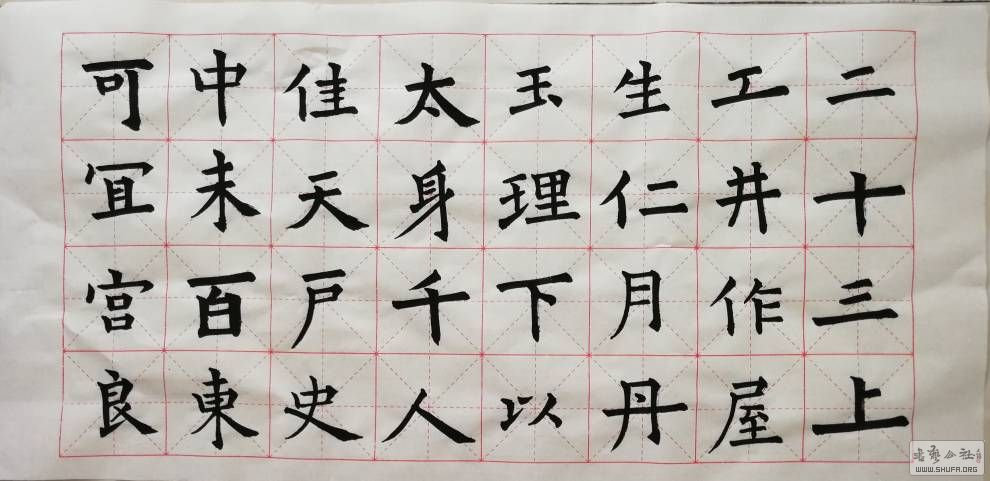 二十三上
工井作屋
生仁月丹
玉理下以
太身千人
佳天戸史
中未百東
可冝宫良
WWW.SHUFA.ORG